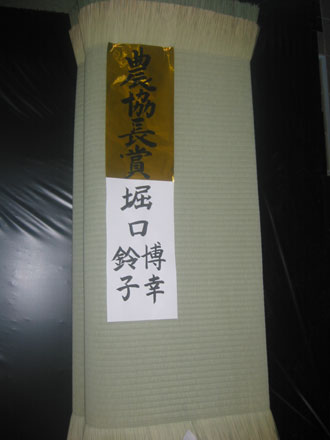 農協長賞
堀口博幸
鈴子